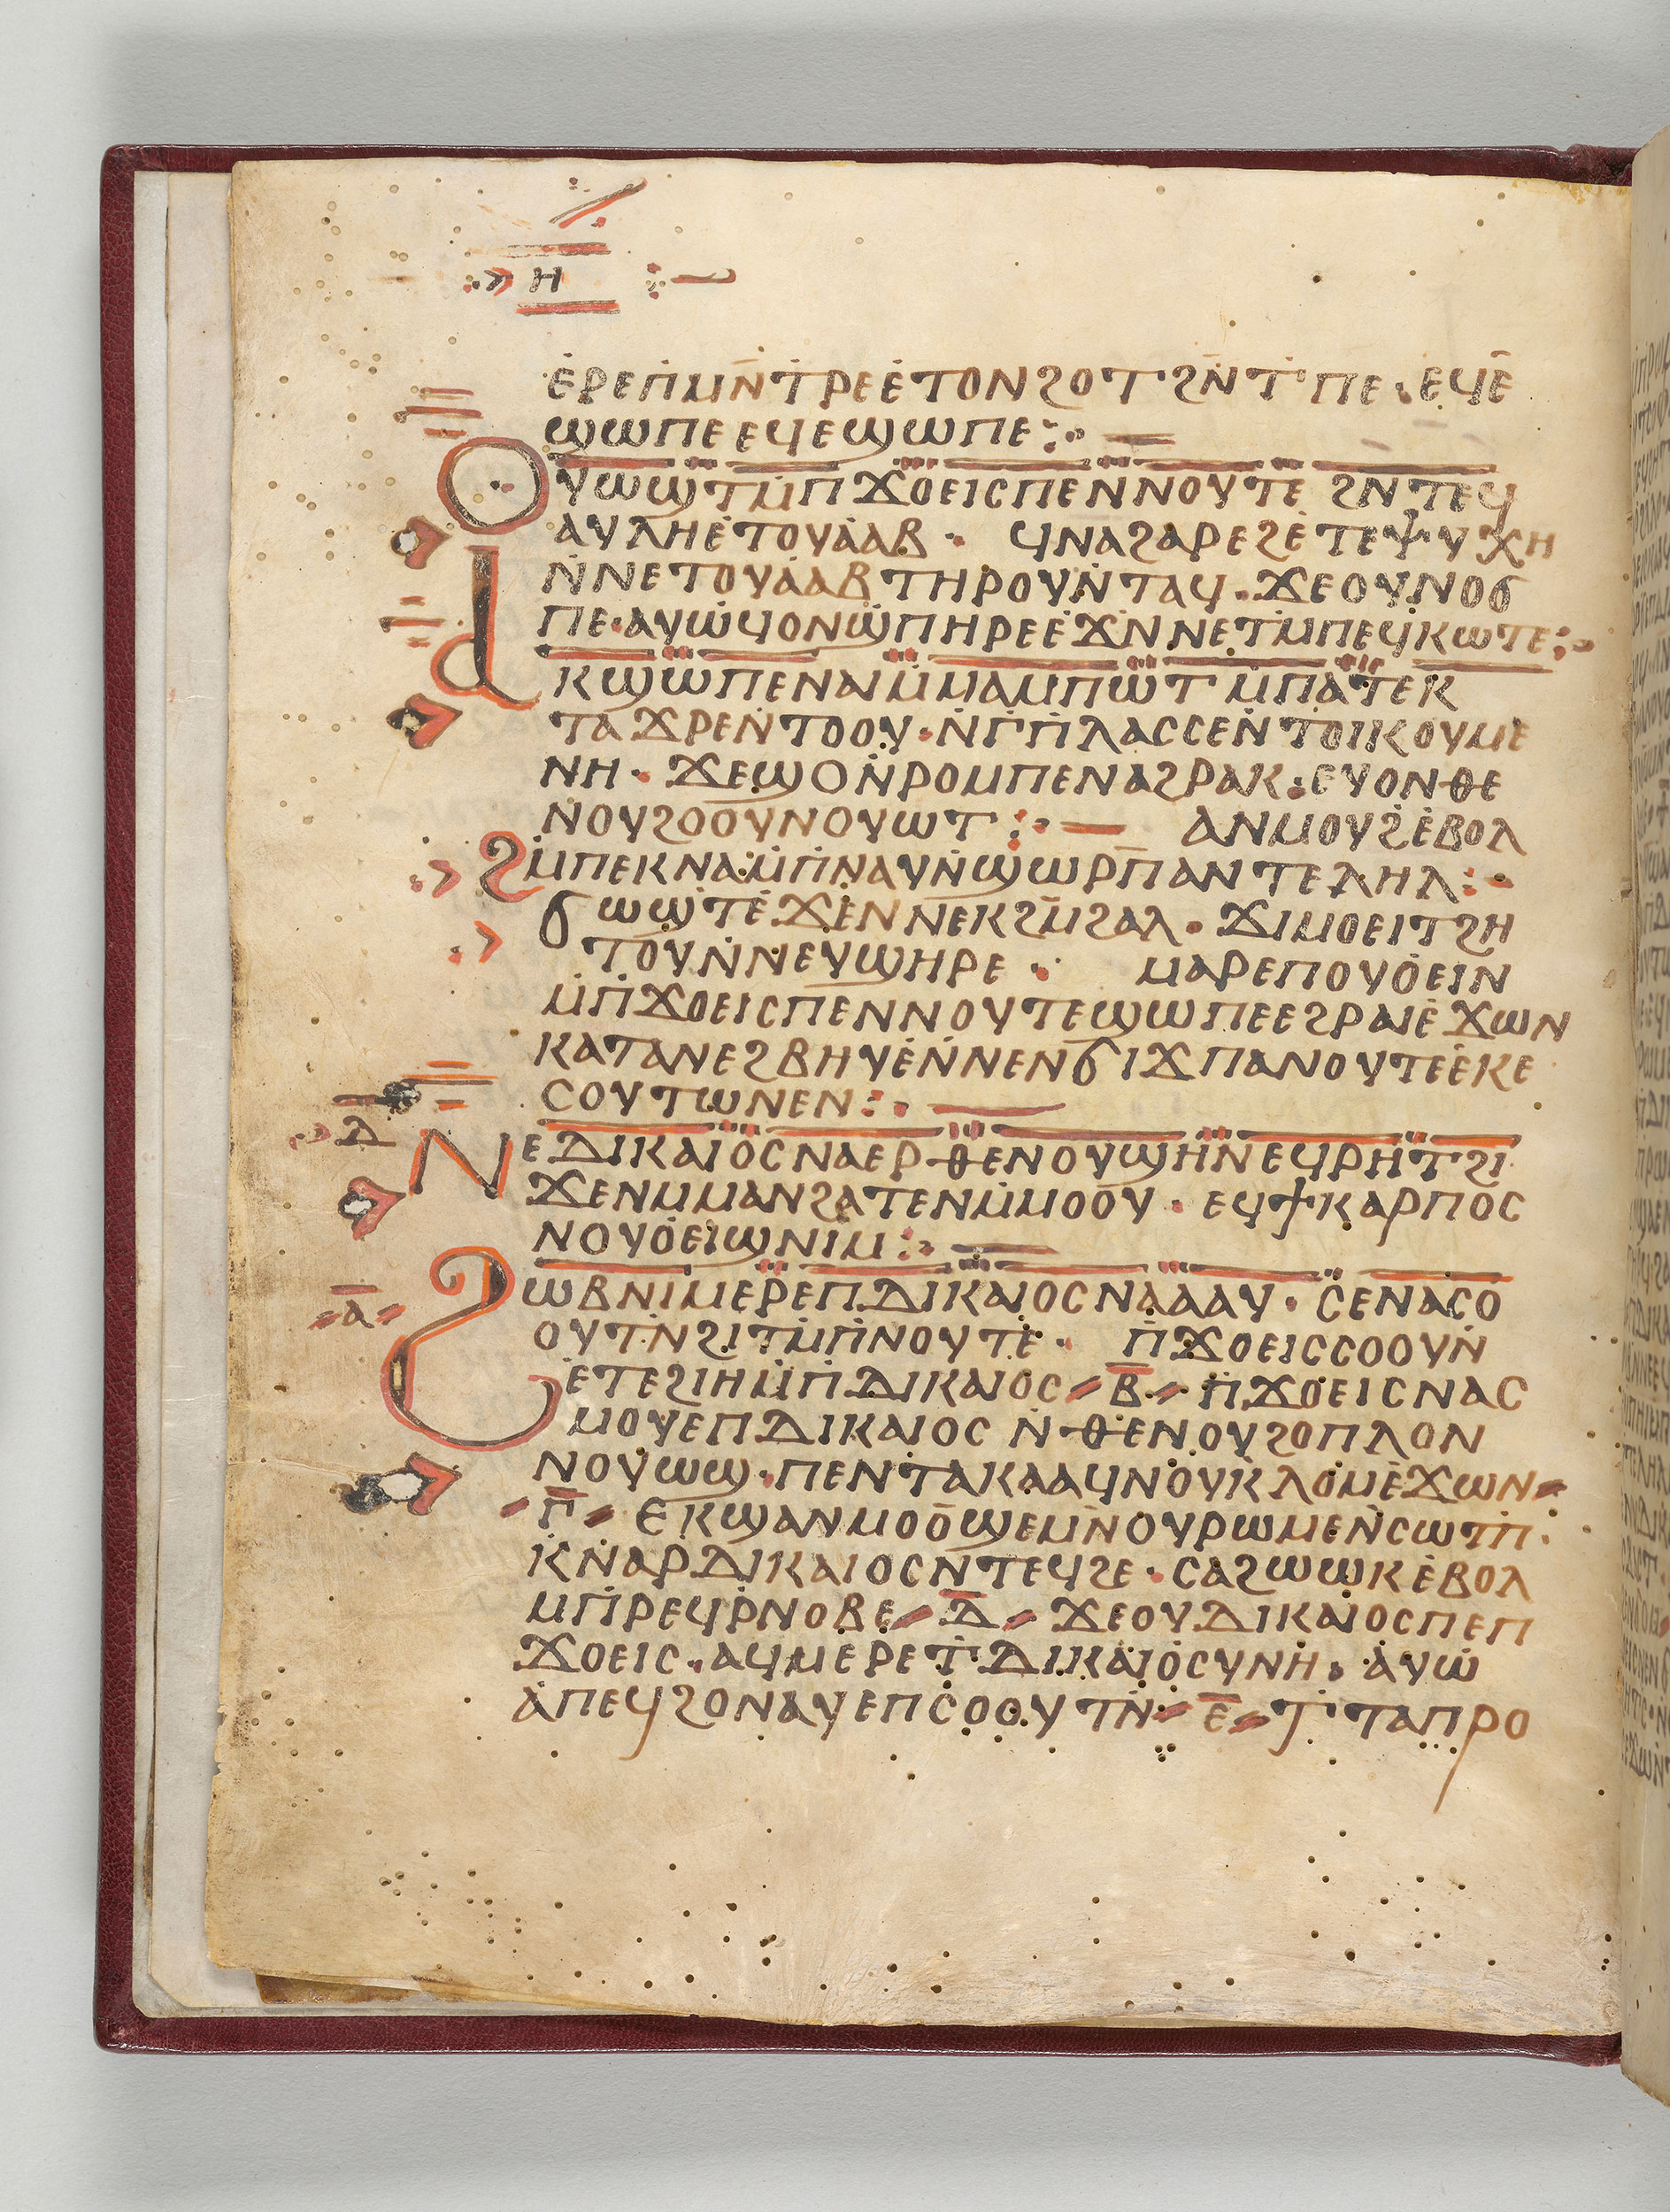 ⲏ
ⲉⲣⲉⲡⲙⲛ̄ⲧⲣⲉⲉⲧⲟⲛϩⲟⲧ ϩⲛ̄ⲧⲡⲉ · ⲉϥⲉ̄
ϣⲱⲡⲉⲉϥⲉϣⲱⲡⲉ :·
ⲟⲩⲱϣⲧⲙ̇ⲡϫⲟⲉⲓⲥⲡⲉⲛⲛⲟⲩⲧⲉ ϩⲛⲧⲉϥ
ⲁⲩⲗⲏⲉ̇ⲧⲟⲩⲁ̇ⲁⲃ · ϥⲛⲁϩⲁⲣⲉϩⲉ̇ⲧⲉⲯⲩⲭⲏ
ⲛ̇ⲛⲉⲧⲟⲩⲁ̇ⲁⲃⲧⲏⲣⲟⲩⲛ̇ⲧⲁϥ · ϫⲉⲟⲩⲛⲟϭ
ⲡⲉ · ⲁⲩⲱ̇ϥⲟⲛϣ̇ⲡⲏⲣⲉⲉ̇ϫⲛ̇ⲛⲉⲧⲙ̇ⲡⲉϥⲕⲱⲧⲉ :·
ⲁⲕϣⲱⲡⲉⲛⲁⲓⲙ̇ⲙⲁⲙⲡⲱⲧ ⲙ̇ⲡⲁⲧⲉⲕ
ⲧⲁϫⲣⲉⲛ̇ⲧⲟⲟⲩ · ⲛ̇ⲅ̇ⲡ̇ⲗⲁⲥⲥⲉⲛ̇ⲧⲟⲓⲕⲟⲩⲙⲉ
ⲛⲏ · ϫⲉϣⲟⲛ̇ⲣⲟⲙⲡⲉⲛⲁϩⲣⲁⲕ : ⲉⲩⲟⲛⲑⲉ
ⲛⲟⲩϩⲟⲟⲩⲛⲟⲩⲱⲧ :· ⲁⲛⲙⲟⲩϩⲉ̇ⲃⲟⲗ
ϩⲙ̇ⲡⲉⲕⲛⲁ · ⲙ̇ⲡ̇ⲛⲁⲩⲛ̇ϣⲱⲣⲡ̄ⲁⲛⲧⲉⲗⲏⲗ :·
ϭⲱϣ̇ⲧⲉ̇ϫⲉ̇ⲛⲛⲉⲕϩⲙ̄ϩⲁⲗ · ϫⲓⲙⲟⲉⲓⲧϩⲏ
ⲧⲟⲩⲛ̇ⲛⲉⲩϣⲏⲣⲉ · ⲙⲁⲣⲉⲡⲟⲩⲟ̇ⲉⲓⲛ
ⲙ̇ⲡ̇ϫⲟⲉⲓⲥⲡⲉⲛⲛⲟⲩⲧⲉϣⲱⲡⲉⲉϩⲣⲁⲓⲉ̇ϫⲱⲛ
ⲕⲁⲧⲁⲛⲉϩⲃⲏⲩⲉ̇ⲛ̇ⲛⲉⲛϭⲓϫ ⲡⲁⲛⲟⲩⲧⲉⲉ̇ⲕⲉ
ⲥⲟⲩⲧⲱⲛⲉⲛ :·
ⲇ̄
ⲛⲉⲇⲓⲕⲁⲓⲟⲥⲛⲁⲉⲣⲑⲉⲛⲟⲩϣⲏ̇ⲛⲉϥⲣⲏⲧϩⲓ
ϫⲉⲛⲙⲙⲁⲛϩⲁⲧⲉⲛⲙ̇ⲙⲟⲟⲩ · ⲉϥϯⲕⲁⲣⲡⲟⲥ
ⲛⲟⲩⲟ̇ⲉⲓϣⲛⲓⲙ :·
ⲁ̄
ϩⲱⲃⲛⲓⲙⲉⲣⲉⲡⲇⲓⲕⲁⲓⲟⲥⲛⲁⲁⲁⲩ · ⲥⲉⲛⲁⲥⲟ
ⲟⲩⲧⲛ̇ϩⲓⲧⲙ̇ⲡ̇ⲛⲟⲩⲧⲉ · ⲡ̇ϫⲟⲉⲓⲥⲥⲟⲟⲩⲛ̇
ⲉ̇ⲧⲉϩⲓⲏⲙ̇ⲡⲇⲓⲕⲁⲓⲟⲥ ⲃ̄ ⲡ̇ϫⲟⲉⲓⲥⲛⲁⲥ
ⲙⲟⲩⲉⲡⲇⲓⲕⲁⲓⲟⲥ ⲛ̇ⲑⲉⲛⲟⲩϩⲟⲡⲗⲟⲛ
ⲛⲟⲩⲱϣ · ⲡⲉⲛⲧⲁⲕⲁⲁϥⲛⲟⲩⲕⲗⲟⲙⲉ̇ϫⲱⲛ
ⲅ̄ ⲉⲕϣⲁⲛⲙⲟⲟ̄ϣⲉⲙⲛ̇ⲟⲩⲣⲱⲙⲉⲛ̇ⲥⲱⲧⲡ̇
ⲕ̇ⲛⲁⲣⲇⲓⲕⲁⲓⲟⲥⲛ̇ⲧⲉϥϩⲉ · ⲥⲁϩⲱⲱⲕⲉ̇ⲃⲟⲗ
ⲙⲡ̇ⲣⲉϥⲣ̇ⲛⲟⲃⲉ ⲇ̄ ϫⲉⲟⲩⲇⲓⲕⲁⲓⲟⲥⲡⲉⲡ
ϫⲟⲉⲓⲥ · ⲁϥⲙⲉⲣⲉⲧ̇ⲇⲓⲕⲁⲓⲟⲥⲩⲛⲏ · ⲁ̇ⲩⲱ̇
ⲁ̇ⲡⲉϥϩⲟⲛⲁⲩⲉⲡⲥⲟⲟⲩⲧⲛ̇ ⲉ̄ ⲧ̇ⲧⲁⲡⲣⲟ